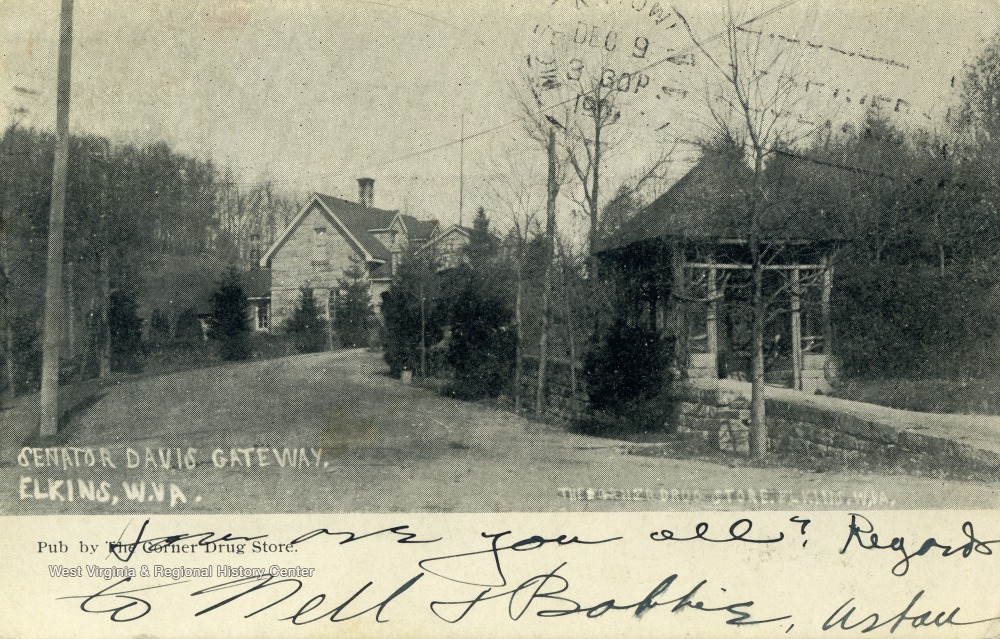 DEC 9
SENATOR DAVIS GATEWAY.
ELKINS, W.VA.
DRUG STORE, ELKINS, W.VA.
Pub by The Corner Drug Store.
West Virginia & Regional History Center
How are you all? Regards
to Nell & Bobbie,